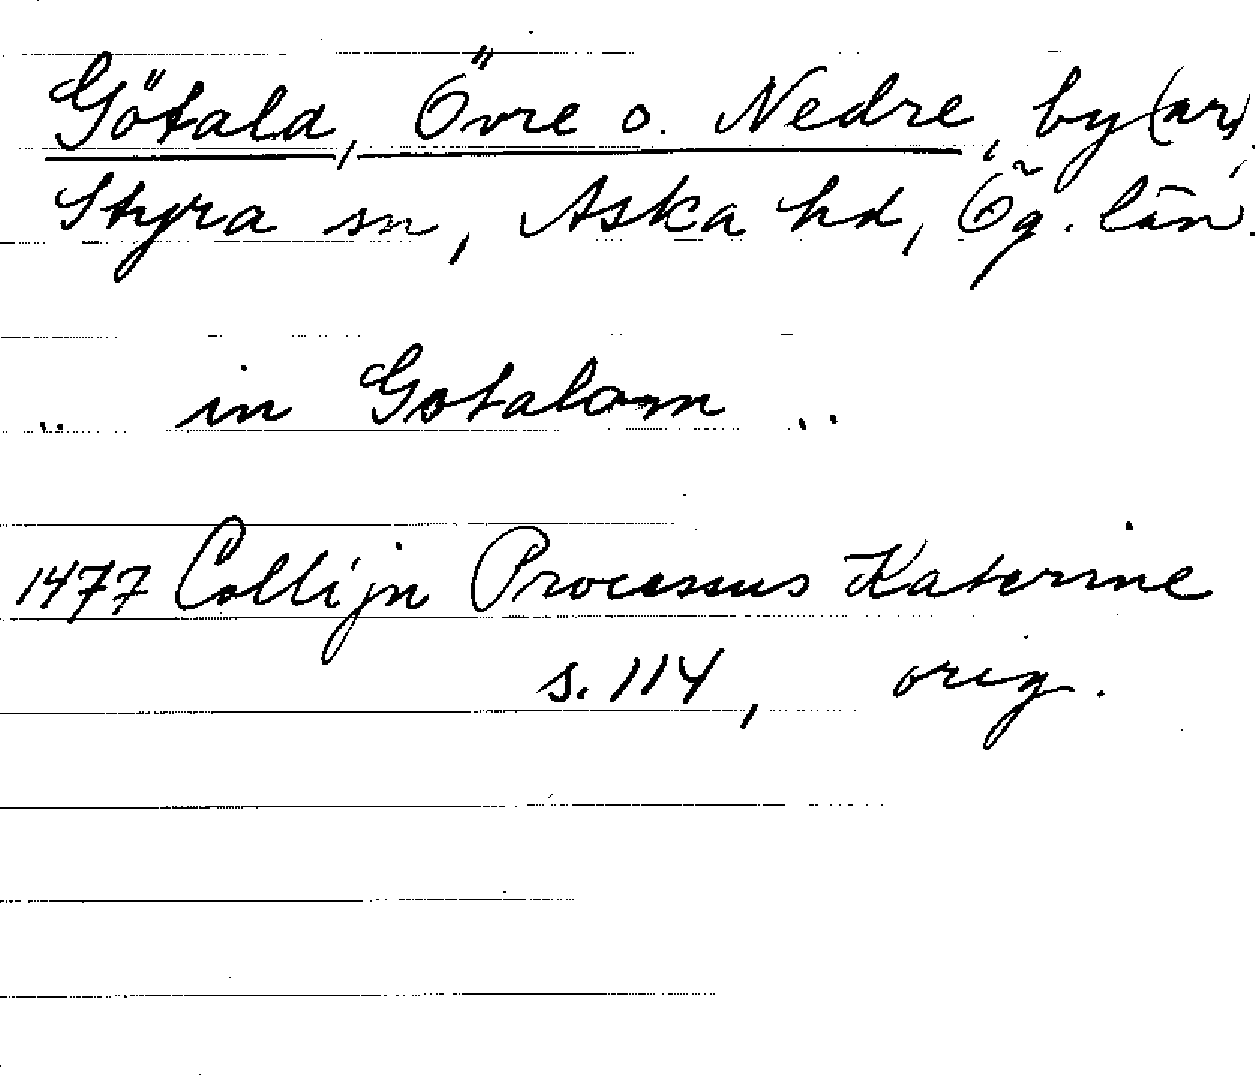 Götala, Övre o. Nedre, by(ar),
Styra sn, Aska hd, Ög. län.
.. in Gotalom ..
1477 Collijn Processus Katerine
s. 114, orig.